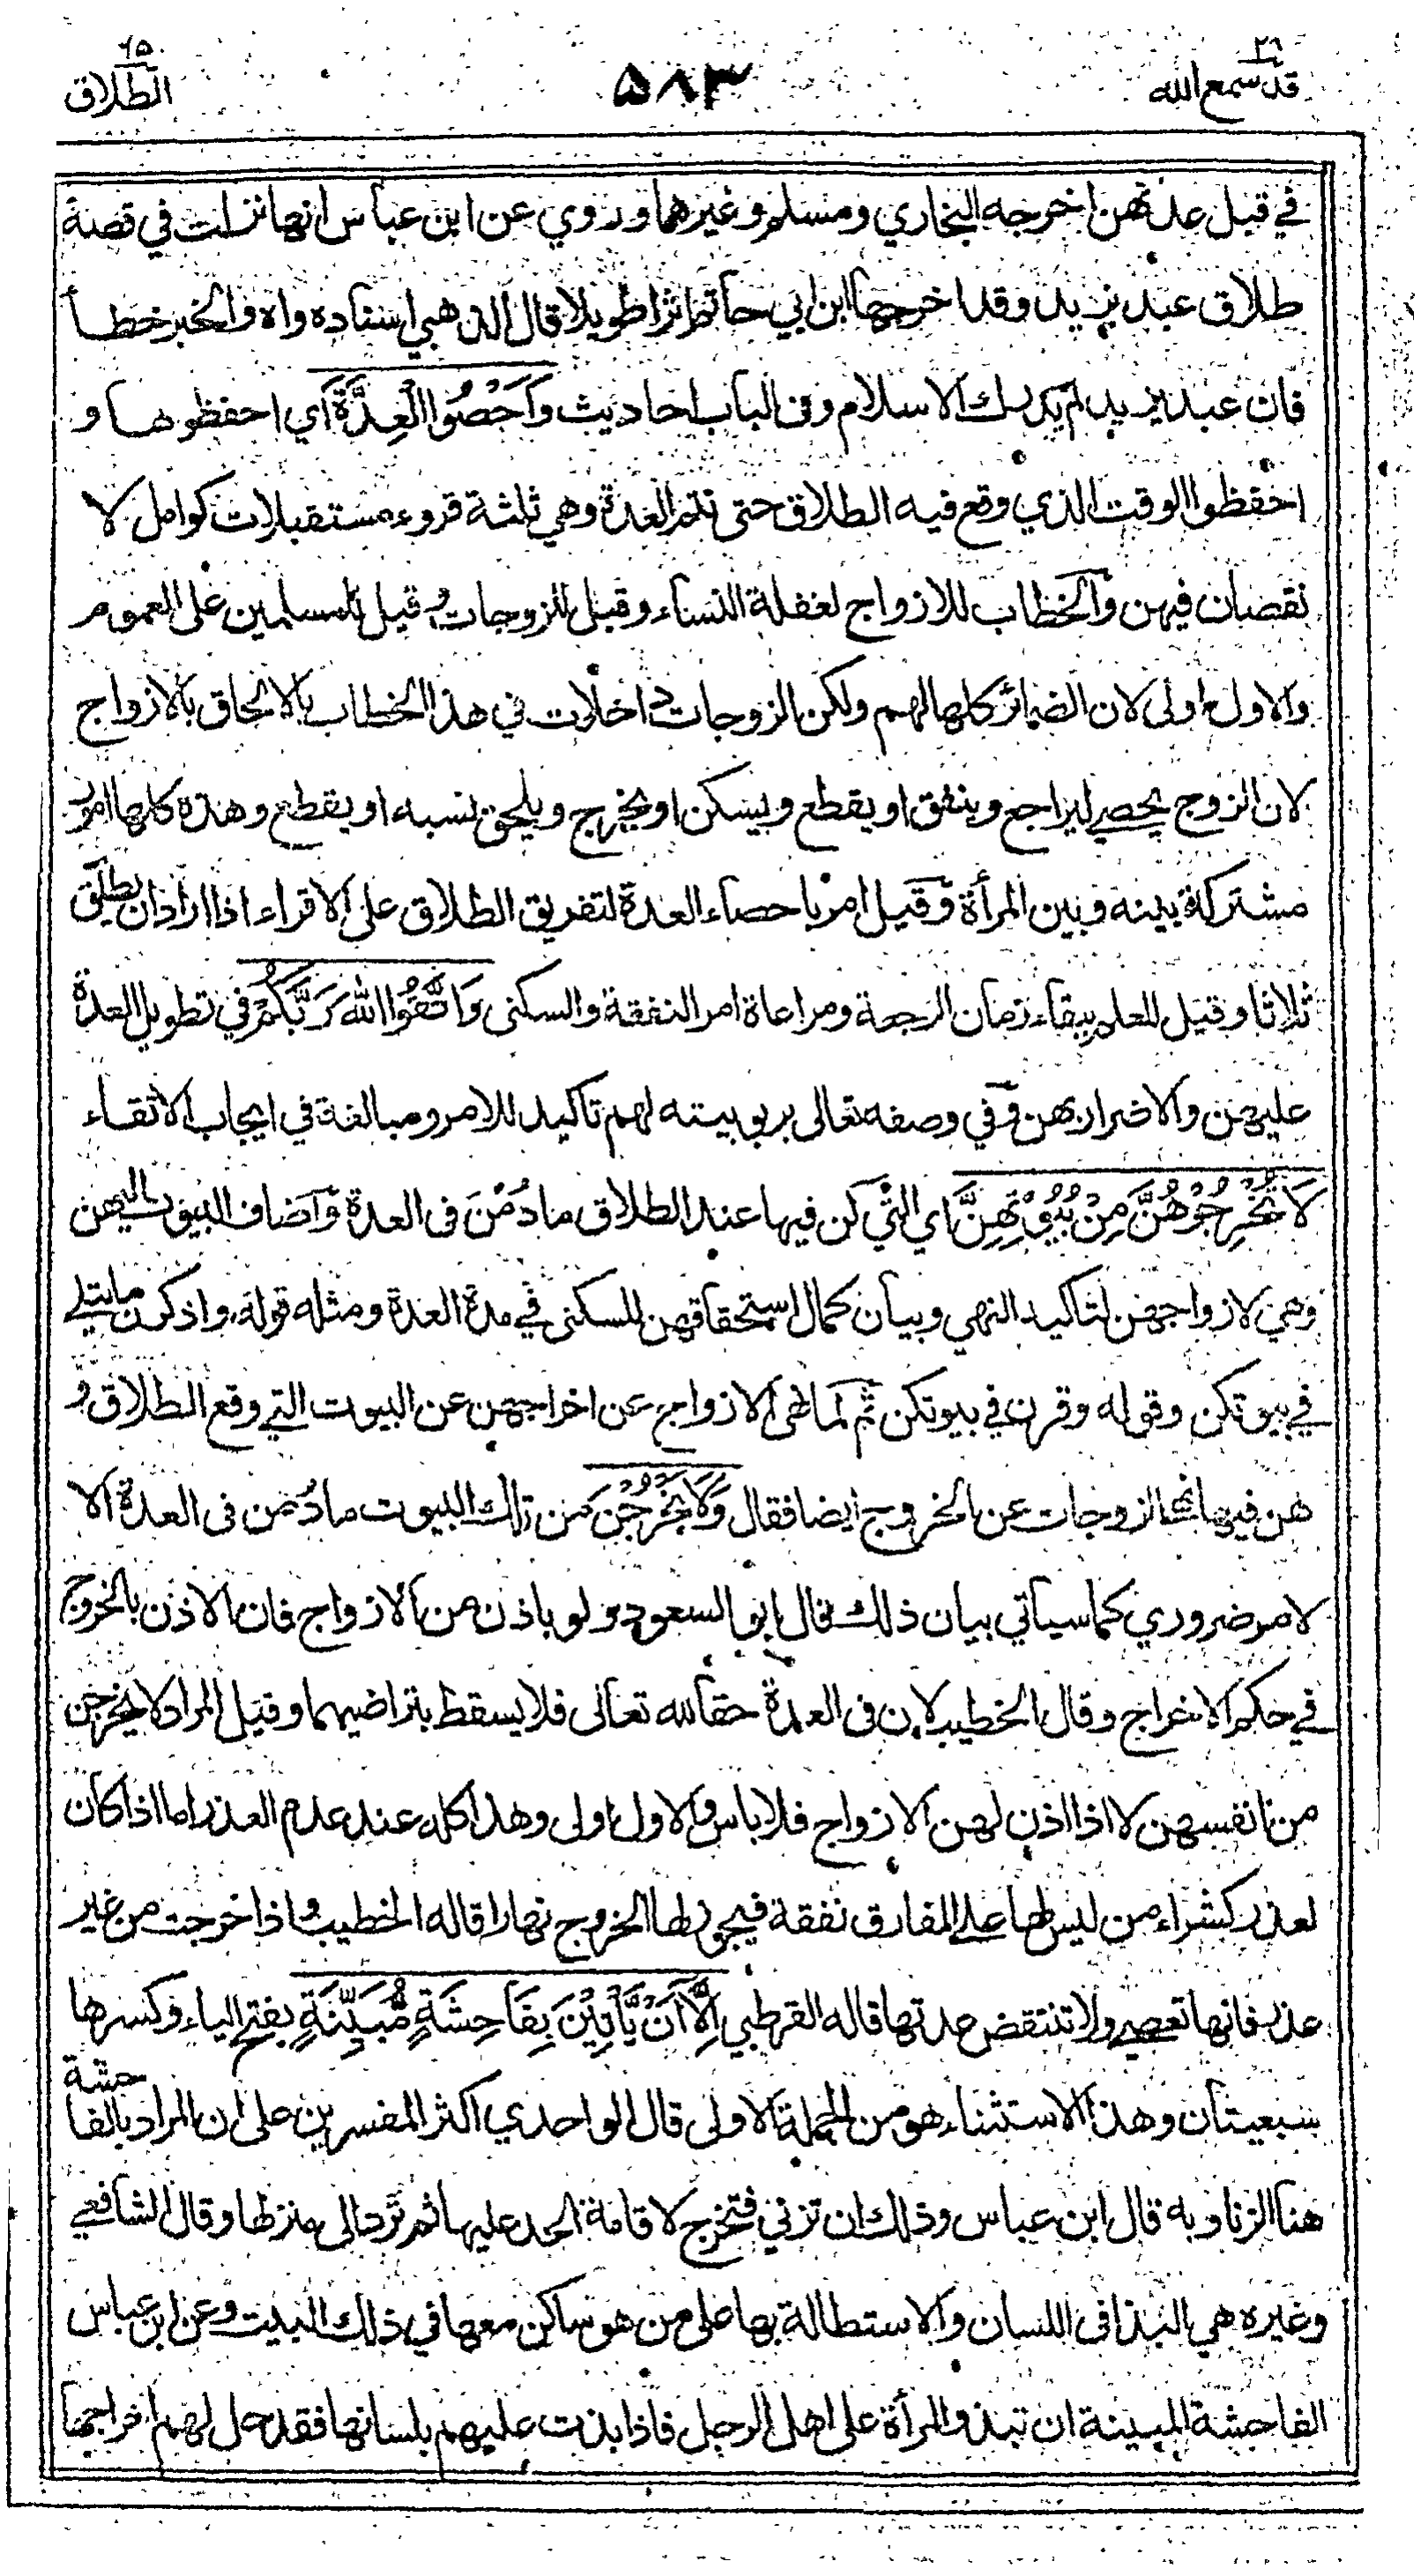 قد سمع الله ٢٨
٥٨٣
الطلاق ٦٥
في قبل عدتهن اخرجه البخاري ومسلم وغيرهما وروي عن ابن عباس انها نزلت في قصة
طلاق عبد يزيد وقد اخرجها ابن ابي حاتم اثرا طويلا قال الذهبي اسناده واه والخبر خطأ
فان عبد يزيد لم يدرك الاسلام وفى الباب احاديث وَأَحْصُوا الْعِدَّةَ اي احفظوها و
احفظوا الوقت الذي وقع فيه الطلاق حتى تتم العدة وهي ثلثة قروء مستقبلات كوامل لا
نقصان فيهن والخطاب للازواج لغفلة النساء وقيل للزوجات وقيل للمسلمين على العموم
والاول اولى لان الضمائر كلها لهم ولكن الزوجات داخلات في هذا الخطاب بالالحاق بالازواج
لان الزوج يحصي ليراجع وينفق او يقطع ويسكن او يخرج ويلحق نسبه او يقطع وهذه كلها امور
مشتركة بينه وبين المرأة وقيل امر باحصاء العدة لتفريق الطلاق على الاقراء اذا اراد ان يطلق
ثلاثا وقيل للعلم ببقاء زمان الرجعة ومراعاة امر النفقة والسكنى وَاتَّقُوا اللهَ رَبَّكُمْ في تطويل العدة
عليهن والاضرار بهن وفي وصفه تعالى بربوبيته لهم تاكيد للامر ومبالغة في ايجاب الاتقاء
لَا تُخْرِجُوْهُنَّ مِنْ بُيُوْتِهِنَّ اي التي كن فيها عند الطلاق ما دُمْنَ فى العدة واضاف البيوت اليهن
وهي لازواجهن لتاكيد النهي وبيان كمال استحقاقهن للسكنى في مدة العدة ومثله قوله واذكرن ما يتلى
في بيوتكن وقوله وقرن في بيوتكن ثم لما نهى الازواج عن اخراجهن عن البيوت التي وقع الطلاق و
هن فيها نهى الزوجات عن الخروج ايضا فقال وَلَا يَخْرُجْنَ من تلك البيوت ما دُمن فى العدة الا
لامر ضروري كما سيأتي بيان ذلك قال ابو السعود ولو باذن من الازواج فان الاذن بالخروج
في حكم الاخراج وقال الخطيب لان فى العدة حقا لله تعالى فلا يسقط بتراضيهما وقيل المراد لا يخرجن
من انفسهن لا اذا اذن لهن الازواج فلا باس والاول اولى وهذا كله عند عدم العذر اما اذا كان
لعذر كشراء من ليس لها على المفارق نفقة فيجوز لها الخروج نهارا قاله الخطيب واذا خرجت من غير
عذر فانها تعصي ولا تنتقض عدتها قاله القرطبي اِلَّا اَنْ يَّأْتِيْنَ بِفَاحِشَةٍ مُّبَيِّنَةٍ بفتح الياء وكسرها
سبعيتان وهذا الاستثناء هو من الجملة الاولى قال الواحدي اكثر المفسرين على ان المراد بالفاحشة
هنا الزنا وبه قال ابن عباس وذلك ان تزني فتخرج لاقامة الحد عليها ثم ترد الى منزلها وقال الشافعي
وغيره هي البذا فى اللسان والاستطالة بها على من هو ساكن معها في ذلك البيت وعن ابن عباس
الفاحشة المبينة ان تبذو المرأة على اهل الرجل فاذا بذت عليهم بلسانها فقد حل لهم اخراجها